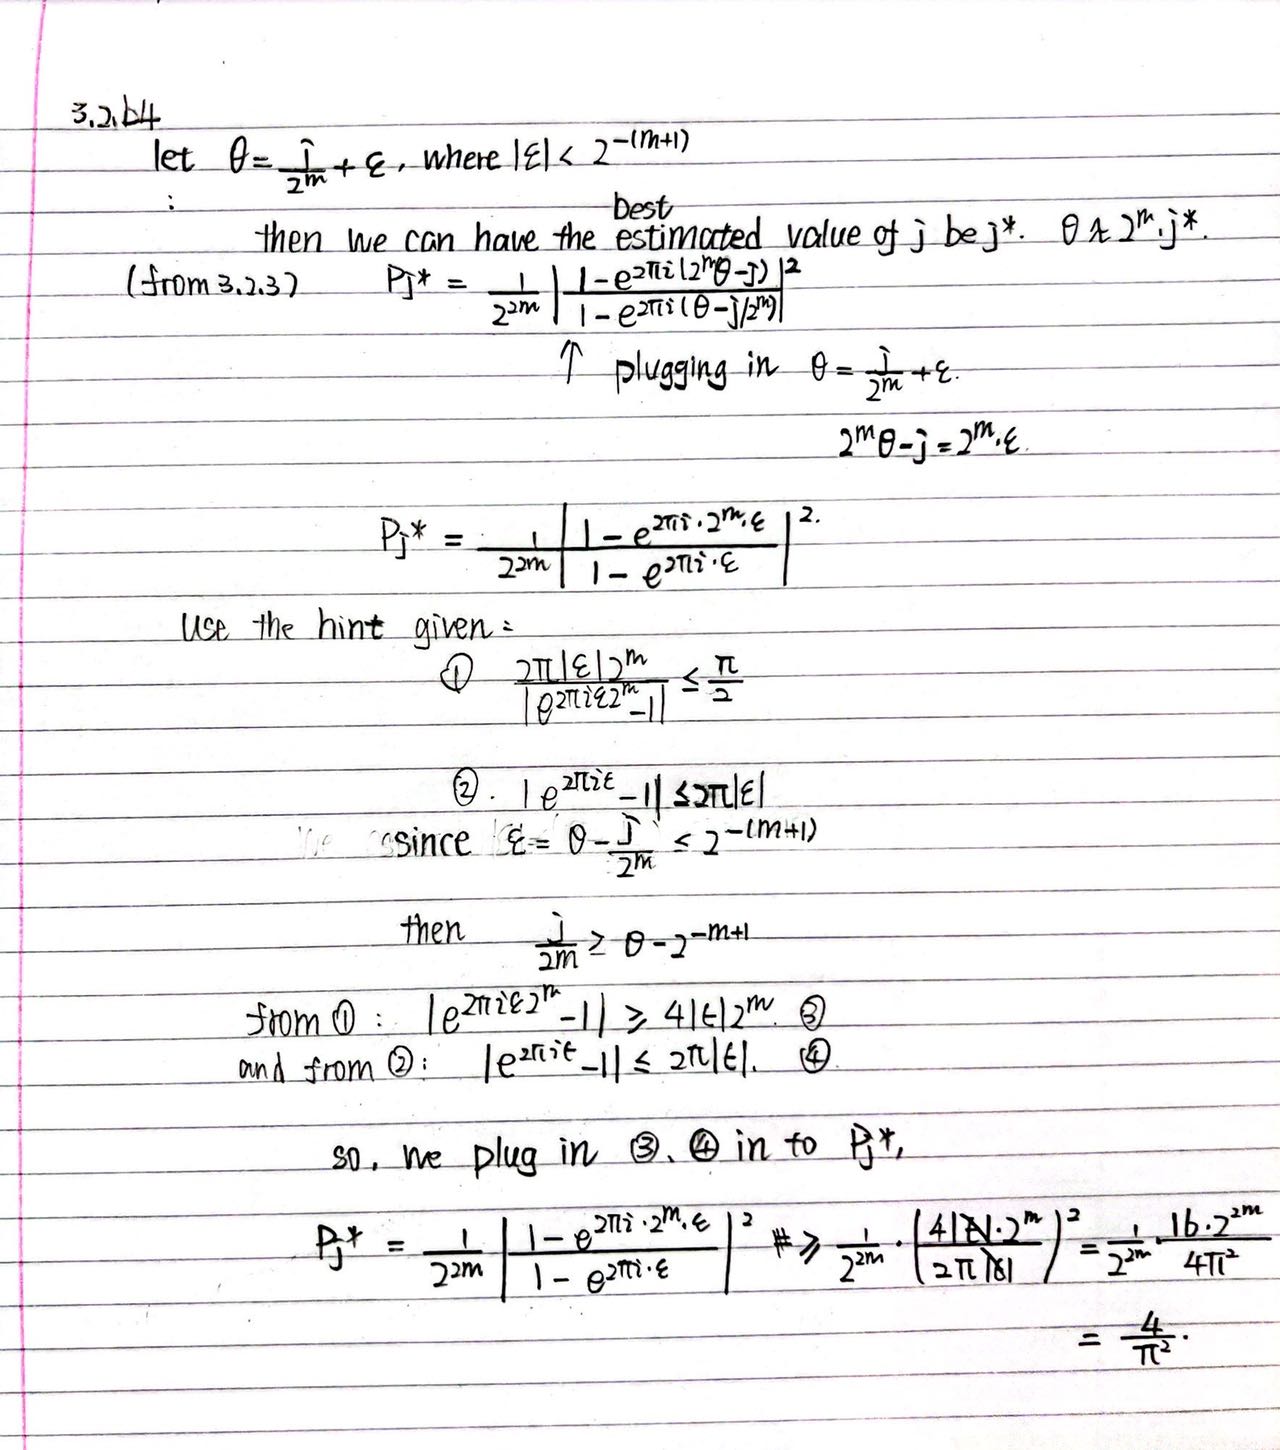 3.2.b4
let θ = j/2^m + ε, where |ε| < 2^-(m+1)
:
best
then we can have the estimated value of j be j*. θ ≈ 2^m·j*.
(from 3.2.3) Pj* = 1/2^2m |(1-e^2πi(2^mθ-j))/(1-e^2πi(θ-j/2^m))|^2
↑ plugging in θ = j/2^m + ε.
2^mθ-j = 2^m·ε.
Pj* = 1/2^2m |(1-e^2πi·2^m·ε)/(1-e^2πi·ε)|^2.
Use the hint given:
① 2π|ε|2^m/|e^2πiε2^m-1| ≤ π/2
②. |e^2πiε-1| ≤ 2π|ε|
since ε = θ - j/2^m ≤ 2^-(m+1)
then j/2m ≥ θ-2^-m+1
from ①: |e^2πiε2^m-1| ≥ 4|ε|2^m. ③
and from ②: |e^2πiε-1| ≤ 2π|ε|. ④
so, we plug in ③、④ in to Pj*,
Pj* = 1/2^2m |(1-e^2πi·2^m·ε)/(1-e^2πi·ε)|^2 ≥ 1/2^2m · (4|ε|·2^m/2π|ε|)^2 = 1/2^2m · 16·2^2m/4π^2
= 4/π^2.